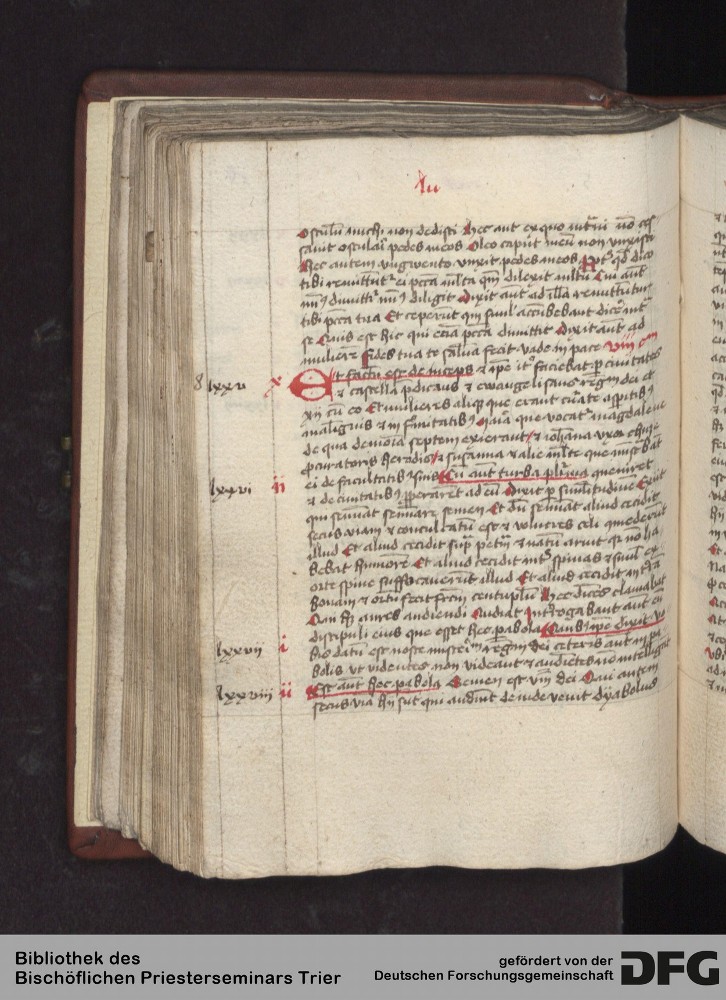 Lu
Osculū michi non dedisti Hec aut ex quo intrauit nō ces
sauit osculari pedes meos Oleo caput meū non vnxisti
Hec autem vngwento vnxit pedes meos Ppt qd dico
tibi remittūt ei pccā multa qm dilexit multū Cui aut
min9 dimittit min9 diligit Dixit aut ad illā remittūtur
tibi pccā tua Et ceperūt qui simul accūbebant dicere int
se Quis est hic qui eciā pccā dimittit Dixit aut ad
mulierē Fides tua te saluā fecit vade in pace viii cm
8 lxxv x Et factū est deinceps & ipe iter faciebat p ciuitates
& castella pdicans & ewangelisans regnū dei et
xii cū eo Et mulieres alique que erant curate a spiritib9
malignis & infirmitatib9 Maria que vocatr magdalene
de qua demonia septem exierant & iohāna vxor chuze
pcuratoris herodis & susanna & alie multe que mistrabāt
ei de facultatib9 suis Cū aut turba plurima queniret
lxxvi ii & de ciuitatib9 pperarēt ad eū Dixit p similitudinē Exiit
qui seminat seminare semen Et dū seminat aliud cecidit
secus viam & conculcatū est & volucres celi comederūt
illud Et aliud cecidit supra petrā & natū aruit qr nō ha
bebat humorē Et aliud cecidit inter spinas & simul ex
orte spine suffocauerūt illud Et aliud cecidit in terrā
bonam & ortū fecit fructū centuplū Hec dicēs clamabat
Qui hȝ aures audiendi Audiat Interrogabant aut eū
discipuli eius que esset hec parabola Quib9 ipe dixit vo
lxxvii i bis datū est nosse misteriū regni dei ceteris aut in pa
bolis vt videntes non videant & audiētes nō intelligāt
lxxviii ii Est aut hec pabola Semen est vm dei Qui autem
secus viā hii sūt qui audiūt deinde venit dyabolus
Bibliothek des
Bischöflichen Priesterseminars Trier
gefördert von der
Deutschen Forschungsgemeinschaft
DFG